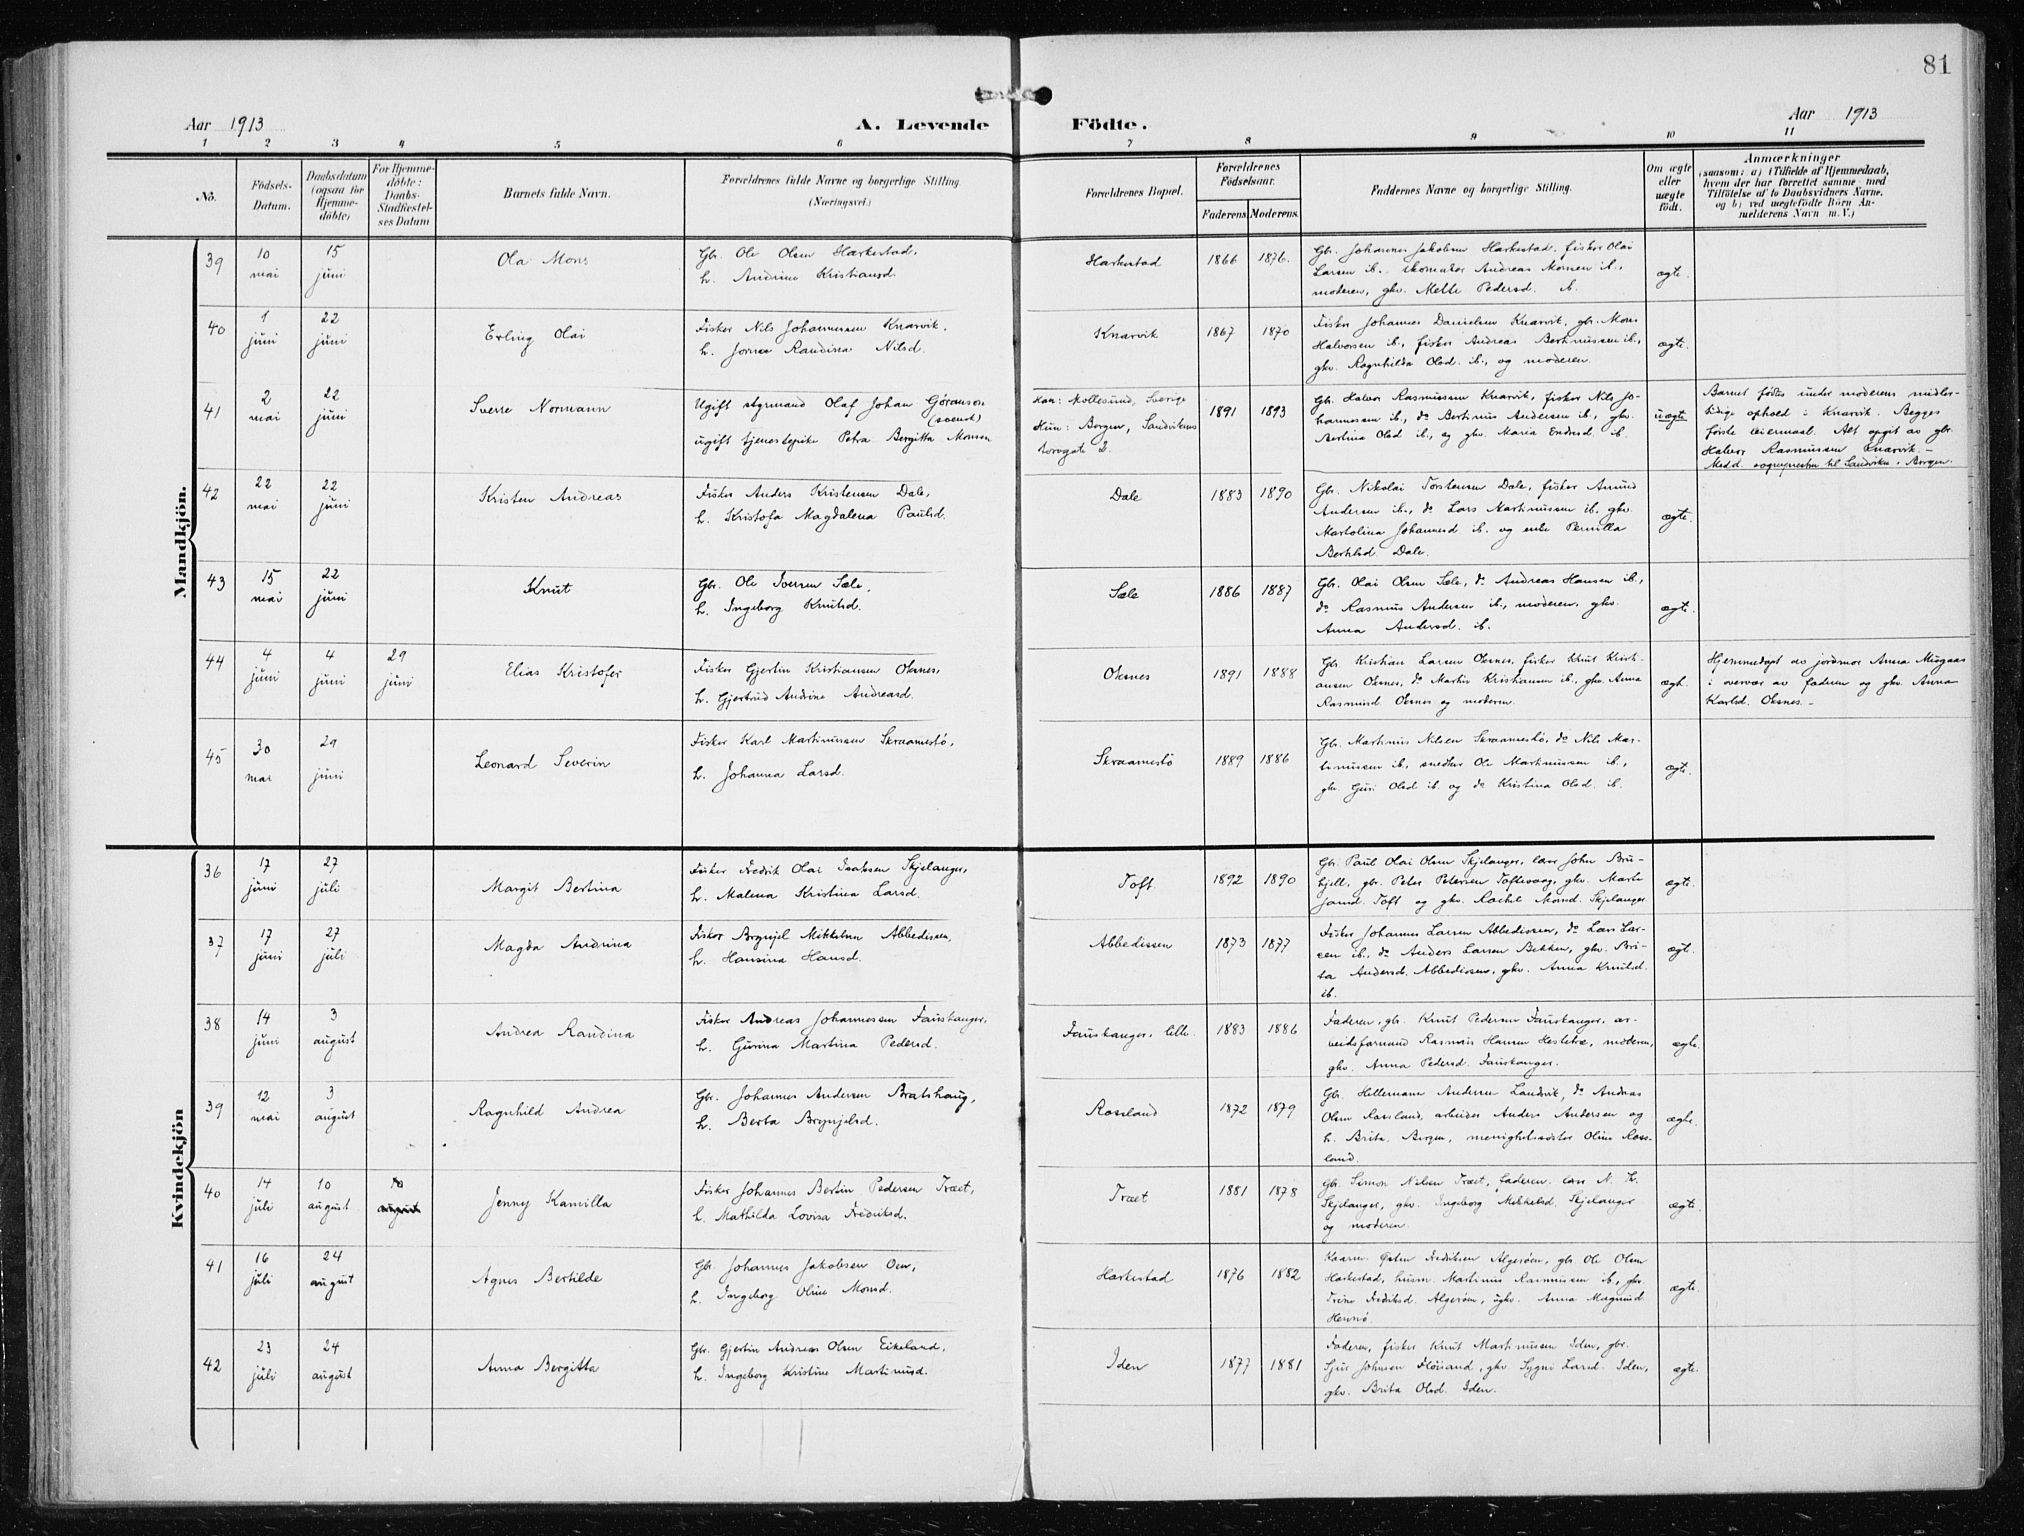 81
Aar 1913
A. Levende Födte.
Aar 1913
1 2 3 4 5 6 7 8 9 10 11
No.
Födsels-
Datum.
Daabsdatum
(ogsaa for
Hjemme-
döbte)
For Hjemme-
döbte:
Daabs-
Stadfæstel-
ses Datum
Barnets fulde Navn.
Forældrenes fulde Navne og borgerlige Stilling.
(Næringsvei.)
Forældrenes Bopæl.
Forældrenes
Födselsaar.
Faderens.
Moderens.
Faddernes Navne og borgerlige Stilling.
Om ægte
eller
uægte
födt.
Anmærkninger
(saasom: a) i Tilfælde af Hjemmedaab,
hvem der har forrettet samme med
Tilföielse af to Daabsvidners Navne,
og b) ved uægtefödte Börn An-
melderens Navn m. V.)
Mandkjön.
39
10
mai
15
juni
Ola Mons
Gbr. Ole Olsen Harkestad,
h. Andrine Kristiansd.
Harkestad
1866 1876.
Gbr. Johannes Jakobsen Harkestad, fisker Olai
Larsen ib., skomaker Andreas Monsen ib.,
moderen, gkv. Mette Pedersd. ib.
ægte.
40
1
juni
22
juni
Erling Olai
Fisker Nils Johannessen Knarvik,
h. Randina Nilsd.
Knarvik
1867 1870
Fisker Johannes Danielsen Knarvik, gbr. Mons
Halvorsen ib., fisker Andreas Bertinussen ib.,
gkv. Ragnhilda Olsd. ib., og moderen.
ægte.
41
2
mai
22
juni
Sverre Normann
Ugift styrmand Olaf Johan Göranson
(svensk)
ugift tjenestepike Petra Bergitta Monsen
Han: Mollesund, Sverige
Hun: Bergen, Sandvikens
torvgate 2.
1891 1893
Gbr. Halvor Rasmussen Knarvik, fisker Nils Jo-
hannessen ib., do Bertinus Andersen ib., gkv.
Bertina Olsd ib., og gkv. Maria Endresd. ib.
uægte
Barnet födtes under moderens midler-
tidige ophold i Knarvik. Begges
förste leiermaal. Alt opgit av gbr.
Halvor Rasmussen Knarvik. –
Medd. sognepresten til Sandviken, Bergen.
42
22
mai
22
juni
Kristen Andreas
Fisker Anders Kristensen Dale,
h. Kristofa Magdalena Paulsd.
Dale
1883 1890
Gbr. Nikolai Torstensen Dale, fisker Amund
Andersen ib., do Lars Martinussen ib., gkv.
Martolina Johannesd ib. og enke Pernilla
Bertelsd. Dale.
ægte.
43
15
mai
22
juni
Knut
Gbr. Ole Sæle,
h. Ingeborg Knutsd.
Sæle
1886 1887
Gbr. Olai Olsen Sæle, do Andreas Hansen ib.,
do Rasmus Andersen ib., moderen, gkv.
Anna Andersd. ib.
ægte.
44
4
juni
4
juni
29
juni
Elias Kristofer
Fisker Gjertin Kristiansen Oksnes,
h. Gjertrud Andrine Andreasd.
Oksnes
1891 1888
Gbr. Kristian Larsen Oksnes, fisker Knut Krist-
iansen Oksnes, do Martin Kristiansen ib., gkv. Anna
Rasmusd. Oksnes og moderen.
ægte.
Hjemmedöpt av jordmor Anna Misgaas
i overvær av faderen og gkv. Anna
Karlsd. Oksnes. –
45
30
mai
29
juni
Leonard Severin
Fisker Karl Martinussen Skraamestö,
h. Johanna Larsd.
Skraamestö
1889 1886
Gbr. Martinus Nilsen Skraamestö, do Nils Mar-
tinussen ib., snedker Ole Martinussen ib.,
gkv. Guri Olsd ib. og do Kristina Olsd. ib.
ægte.
Kvindekjön
36
17
juni
27
juli
Margit Bertina
Fisker Fredrik Olai Isaksen Skjelanger,
h. Malena Kristina Larsd.
Toft
1892 1890
Gbr. Paul Olai Olsen Skjelanger, lærer John Bru-
hjell, gbr. Peter Petersen Toftevaag, gkv. Marte
Toft og gkv. Rachel Monsd. Skjelanger
ægte.
37
17
juni
27
juli
Magda Andrina
Fisker Brynjel Mikkelsen Abbedissen,
h. Hansina Hansd.
Abbedissen
1873 1877
Fisker Johannes Larsen Abbedissen, do Lars Lar-
sen ib., do Anders Larsen Bekken, gkv. Bri-
ta Andersd. Abbedissen, gkv. Anna Knutsd.
ib.
ægte.
38
14
juni
3
august
Andrea Randina
Fisker Andreas Johannessen Fauskanger,
h. Gurina Martina Pedersd.
Fauskanger, lille
1883 1886
Faderen, gbr. Knut Pedersen Fauskanger, ar-
beidsformand Rasmus Hansen moderen,
gkv. Anna Pedersd. Fauskanger.
ægte.
39
12
mai
3
august
Ragnhild Andrea
Gbr. Johannes Andersen Bratshaug,
h. Berta Brynjelsd.
Rossland
1872 1879
Gbr. Hellemann Andersen Landsvik, do Andreas
Olsen Rossland, arbeider Anders Andersen og
h. Brita, Bergen, menighetssöster Oline Ross-
land.
ægte.
40
14
juli
10
august
10
august
Jenny Kamilla
Fisker Johannes Bertin Pedersen Træet,
h. Mathilda Lovisa Fredriksd.
Træet
1881 1878
Gbr. Simon Nilsen Træet, faderen, lærer N. K.
Skjelanger, gkv. Ingeborg Mikkelsd. Skjelanger
og moderen.
ægte.
41
16
juli
24
august
Agnes Bertilde
Gbr. Johannes Jakobsen Oen,
h. Ingeborg Oline Monsd.
Harkestad
1876 1882
Kaarm. Östen Fredriksen Algeröen, gbr Ole Olsen
Harkestad, husm. Martinus Rasmussen ib., gkv.
Trine Fredriksd. Algeröen, ugkv. Anna Magnusd.
Hennö
ægte.
42
23
juli
24
august
Anna Bergitta
Gbr. Gjertin Andreas Olsen Eikeland,
h. Ingeborg Kristine Martinusd.
Iden
1877 1881
Faderen, fisker Knut Martinussen Iden, gbr.
Sjur Johnsen Flöisand, gkv Sygni Larsd. Iden,
gkv. Brita Olsd. Iden.
ægte.